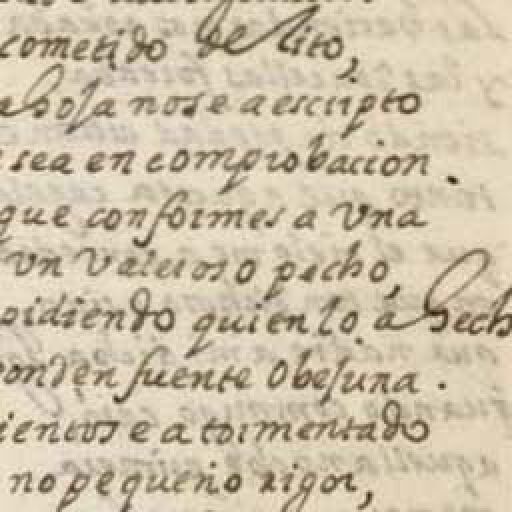 cometido delito,
hosa nos e a escripto
sea en comprobacion.
que conformes a Vna
Vn Valeroso pecho,
pidiendo quien lo á hech
ponden fuente Obejuna.
ientos e atormentado
no pequeño rigor,